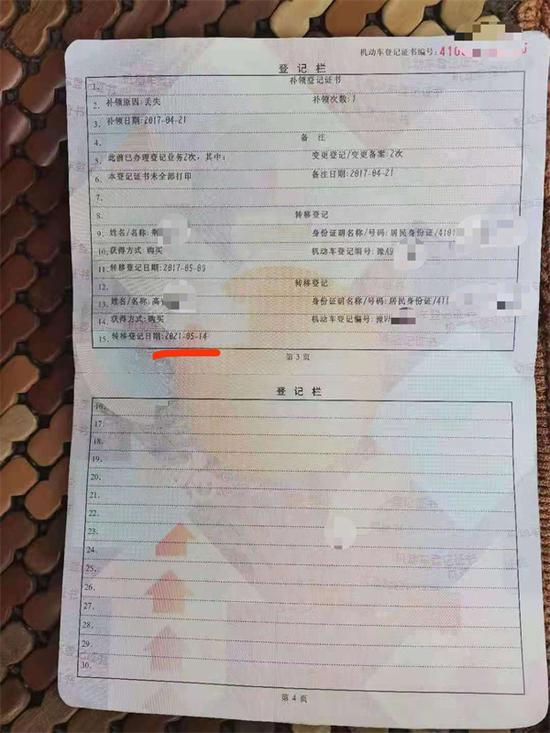 机动车登记证书编号:410
登 记 栏
1. 补领登记证书
2. 补领原因:丢失 补领次数:1
3. 补领日期:2017-04-21
4. 备 注
5. 此前已办理登记业务2次,其中: 变更登记/变更备案:2次
6. 本登记证书未全部打印 备注日期:2017-04-21
7.
8. 转移登记
9. 姓名/名称: 身份证明名称/号码:居民身份证/4101
10. 获得方式:购买 机动车登记编号:豫A
11. 转移登记日期:2017-05-09
12. 转移登记
13. 姓名/名称:高 身份证明名称/号码:居民身份证/411
14. 获得方式:购买 机动车登记编号:豫
15. 转移登记日期:2021-05-14
第 3 页
登 记 栏
16.
17.
18.
19.
20.
21.
22.
23.
24.
25.
26.
27.
28.
29.
30.
第 4 页